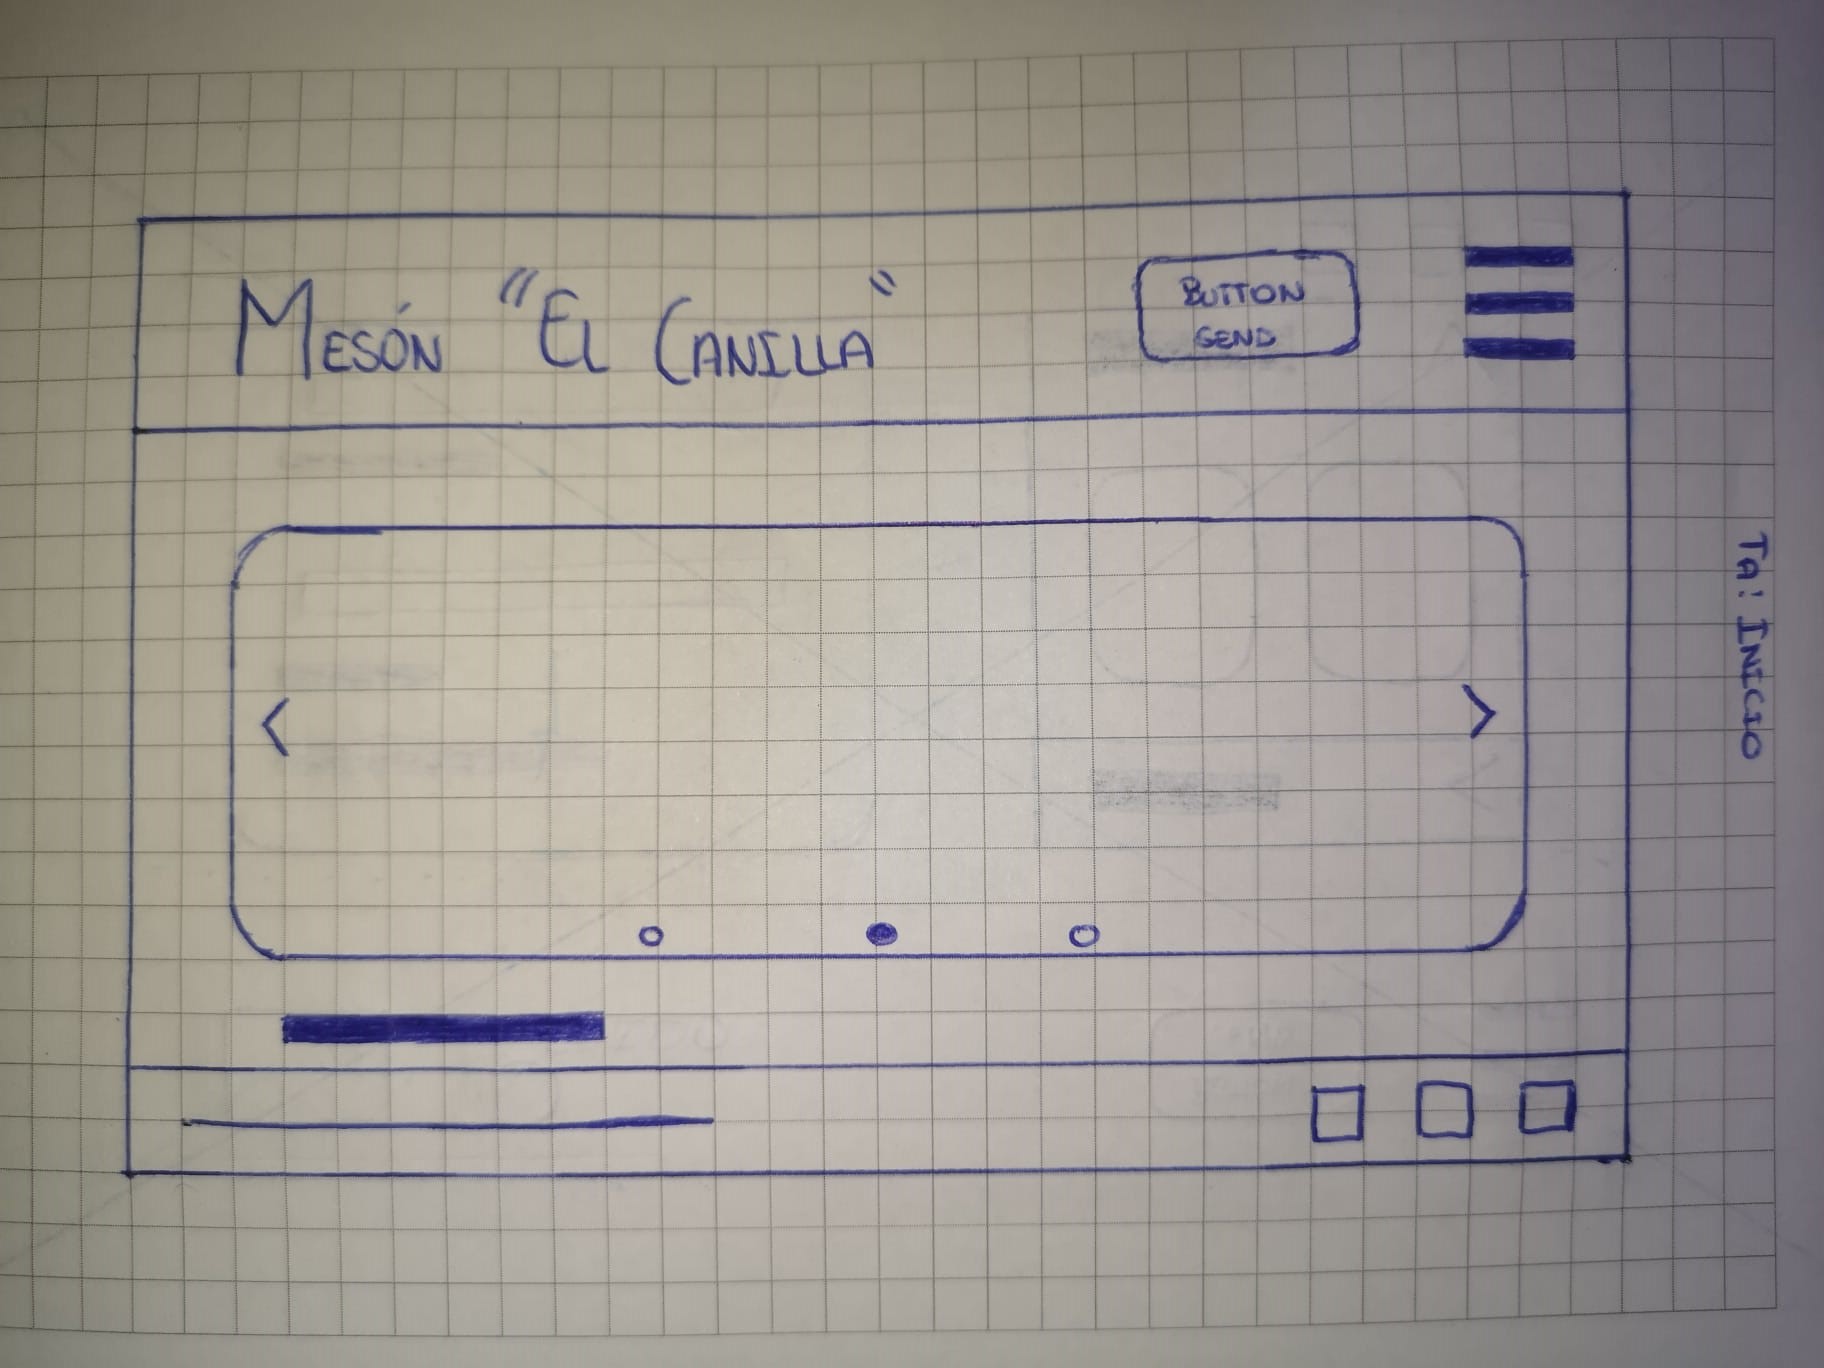 MESÓN "EL CANILLA"
BUTTON
SEND
TA: INICIO